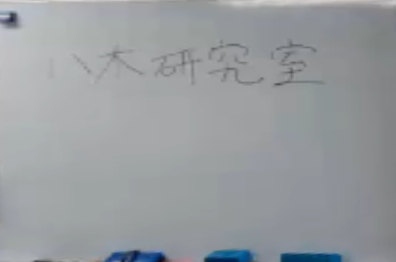 八木研究室